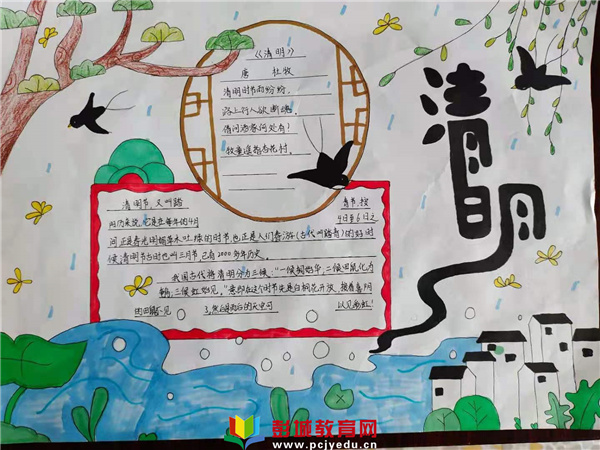 《清明》
唐 杜牧
清明时节雨纷纷，
路上行人欲断魂。
借问酒家何处有？
牧童遥指杏花村。
清明
清明节，又叫踏青节，按
阳历来说，它是在每年的4月4日至6日之
间，正是春光明媚草木吐绿的时节，也正是人们春游（古代叫踏青）的好时
候，清明节古时也叫三月节，已有2000多年历史。
我国古代将清明分为三候："一候桐始华，二候田鼠化为
三候虹始见。"意即在这个时节先是白桐花开放，接着喜阴
的田鼠不见
可以见彩虹！
彭城教育网
www.pcjyedu.cn